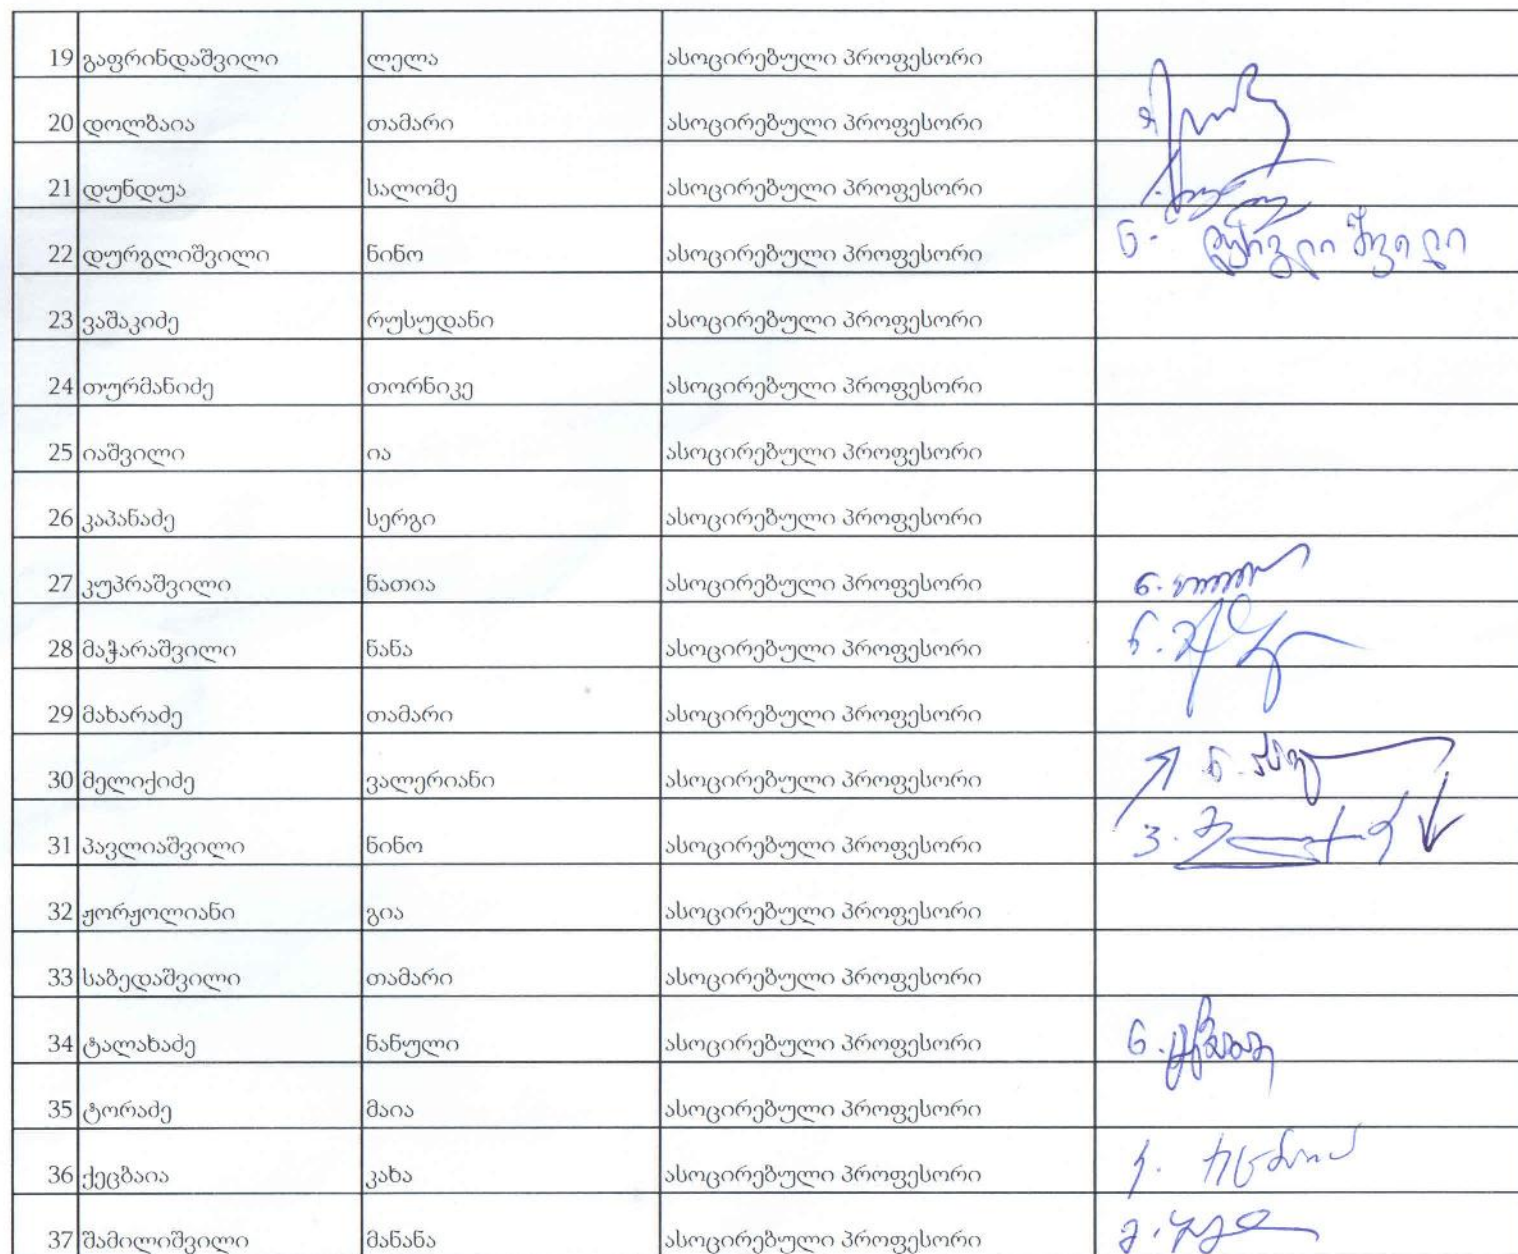 19 გაფრინდაშვილი ლელა ასოცირებული პროფესორი
20 დოლბაია თამარი ასოცირებული პროფესორი
21 დუნდუა სალომე ასოცირებული პროფესორი
22 დურგლიშვილი ნინო ასოცირებული პროფესორი ნ. დურგლიშვილი
23 ვაშაკიძე რუსუდანი ასოცირებული პროფესორი
24 თურმანიძე თორნიკე ასოცირებული პროფესორი
25 იაშვილი ია ასოცირებული პროფესორი
26 კაპანაძე სერგი ასოცირებული პროფესორი
27 კუპრაშვილი ნათია ასოცირებული პროფესორი ნ.
28 მაჭარაშვილი ნანა ასოცირებული პროფესორი ნ.
29 მახარაძე თამარი ასოცირებული პროფესორი
30 მელიქიძე ვალერიანი ასოცირებული პროფესორი ნ.
31 პავლიაშვილი ნინო ასოცირებული პროფესორი ვ.
32 ჟორჟოლიანი გია ასოცირებული პროფესორი
33 საბედაშვილი თამარი ასოცირებული პროფესორი
34 ტალახაძე ნანული ასოცირებული პროფესორი ნ.
35 ტორაძე მაია ასოცირებული პროფესორი
36 ქეცბაია კახა ასოცირებული პროფესორი
37 შამილიშვილი მანანა ასოცირებული პროფესორი მ.